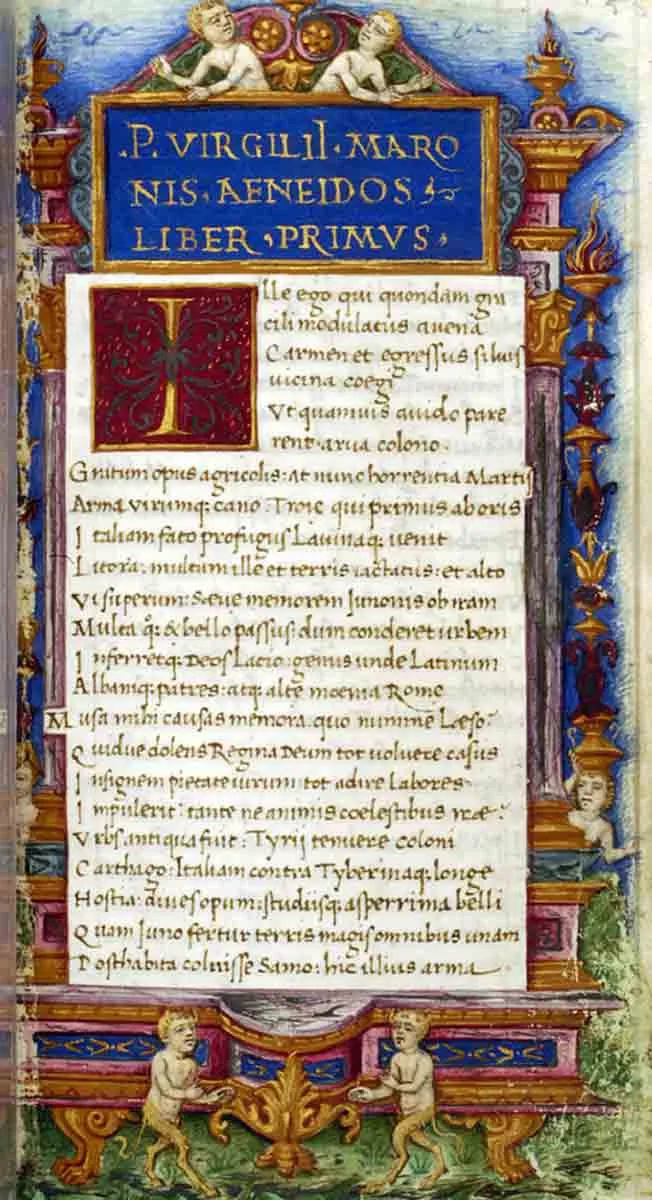 .P. VIRGILII · MARO
NIS · AENEIDOS
LIBER · PRIMVS ·
Ille ego qui quondam gra
cili modulatus auena
Carmen et egressus siluis
uicina coegi
Vt quamuis auido pare
rent · arua colono ·
Gratum opus agricolis: at nunc horrentia Martis
Arma virumq; cano : Troie qui primus ab oris
Italiam fato profugus Lauinaq; uenit
Litora: multum ille et terris iactatus: et alto
Vi superum: Seue memorem Junonis ob iram
Multa q; & bello passus: dum conderet urbem
Inferretq; Deos Lacio: genus unde Latinum
Albaniq; patres: atq; alte moenia Rome
Musa mihi causas memora. quo numine Læso?
Quidue dolens Regina Deum tot voluere casus
Insignem pietate uirum: tot adire Labores
Impulerit: tante ne animis coelestibus iræ?
Vrbs antiqua fuit: Tyrii tenuere coloni
Carthago: Italiam contra Tyberinaq; longe
Hostia: diues opum: studiisq; asperrima belli
Quam Juno fertur terris magis omnibus unam
Posthabita coluisse Samo: hic illius arma